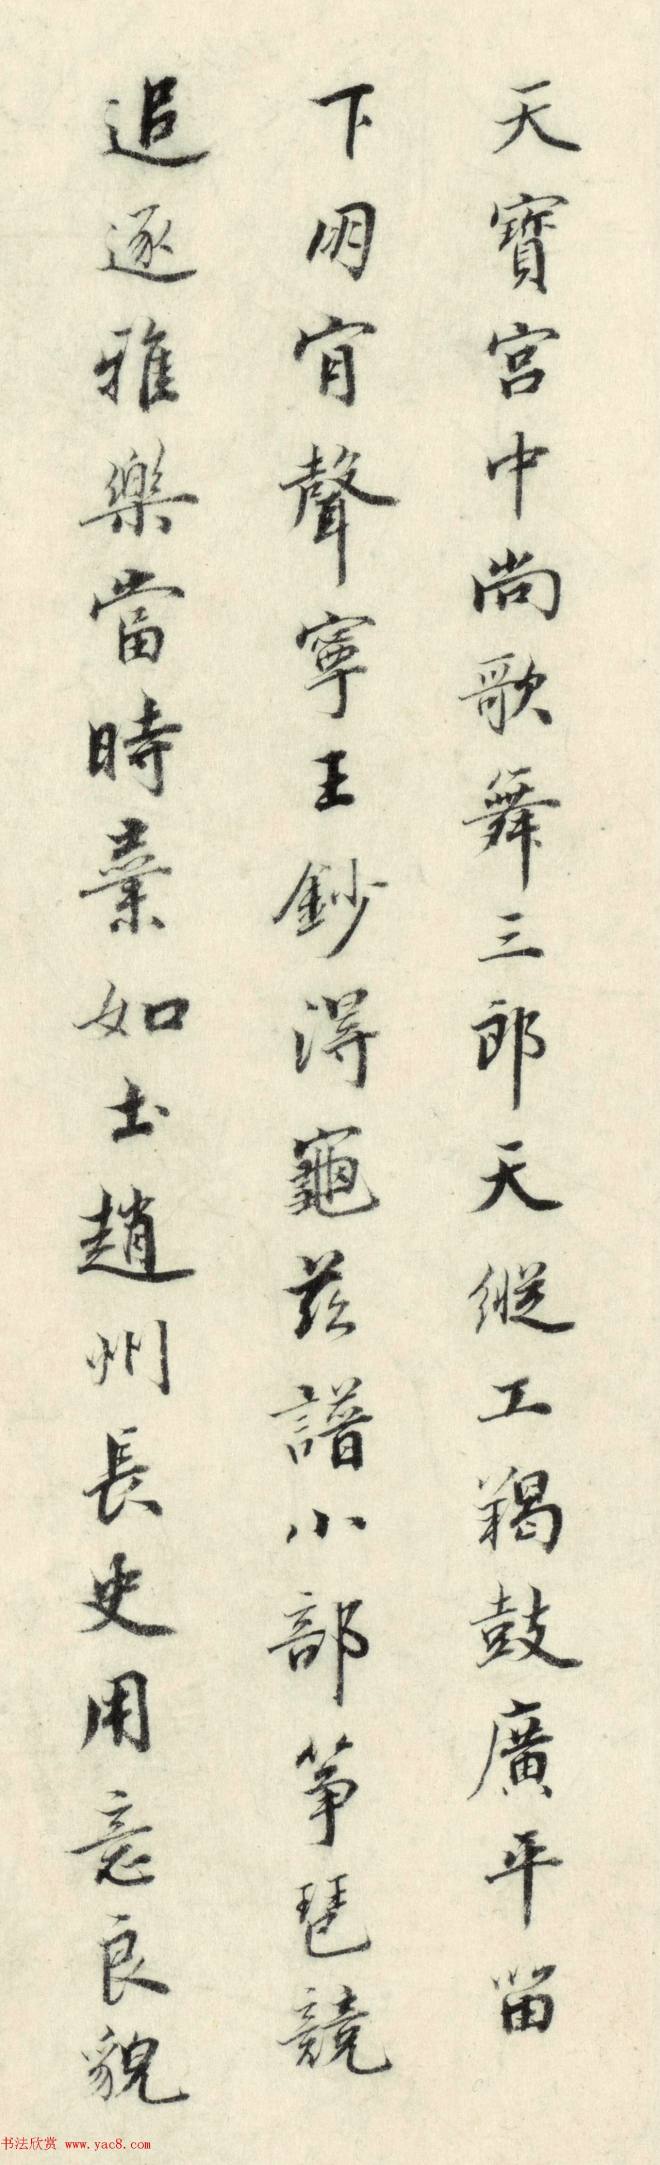 天寶宮中尚歌舞三郎天縱工羯鼓廣平留
下朋肎聲寧王鈔得龜茲譜小部箏琶競
追逐雅樂當時棄如土趙州長史用意良貌
书法欣赏 www.yac8.com